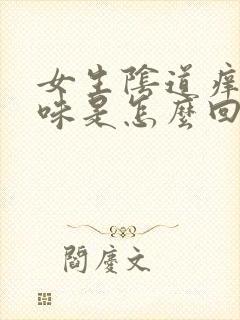 女生陰道癢
味是怎麼回
閻慶文